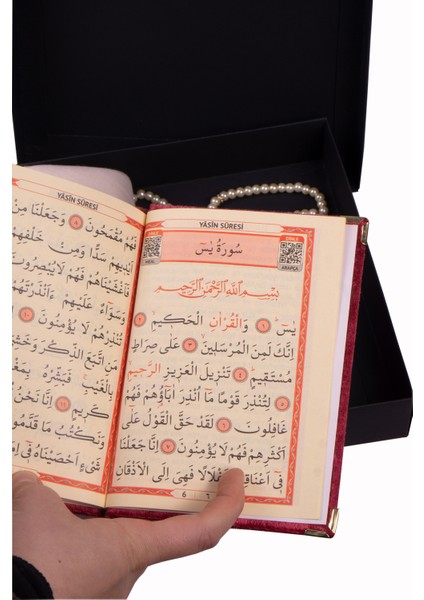 YÂSÎN SÛRESİ
سُورَةُ يٰسٓ
ARAPÇA
بِسْمِ اللّٰهِ الرَّحْمٰنِ الرَّحِيمِ
يٰسٓ ١ وَالْقُرْاٰنِ الْحَكِيمِ ٢
اِنَّكَ لَمِنَ الْمُرْسَلِينَ ٣ عَلٰى صِرَاطٍ
مُسْتَقِيمٍ ٤ تَنْزِيلَ الْعَزِيزِ الرَّحِيمِ
٥ لِتُنْذِرَ قَوْمًا مَٓا اُنْذِرَ اٰبَٓاؤُهُمْ فَهُمْ
غَافِلُونَ ٦ لَقَدْ حَقَّ الْقَوْلُ عَلٰٓى
اَكْثَرِهِمْ فَهُمْ لَا يُؤْمِنُونَ ٧ اِنَّا جَعَلْنَا
فٓى فَهِىَ اِلَى الْاَذْقَانِ
6 ٦
YÂSÎN SÛRESİ
فَهُمْ مُقْمَحُونَ ٨ وَجَعَلْنَا مِنْ
اَيْدِيهِمْ سَدًّا وَمِنْ خَلْفِهِمْ
فَاَغْشَيْنَاهُمْ فَهُمْ لَا يُبْصِرُونَ
وَسَوَٓاءٌ عَلَيْهِمْ ءَاَنْذَرْتَهُمْ
تُنْذِرْهُمْ لَا يُؤْمِنُونَ ١٠
مَنِ اتَّبَعَ الذِّكْرَ وَخَشِىَ
بِالْغَيْبِ فَبَشِّرْهُ بِمَغْفِرَةٍ
كَرِيمٍ ١١ اِنَّا نَحْنُ
وَنَكْتُبُ مَا قَدَّمُوا
شَىْءٍ اَحْصَيْنَاهُ فٓى